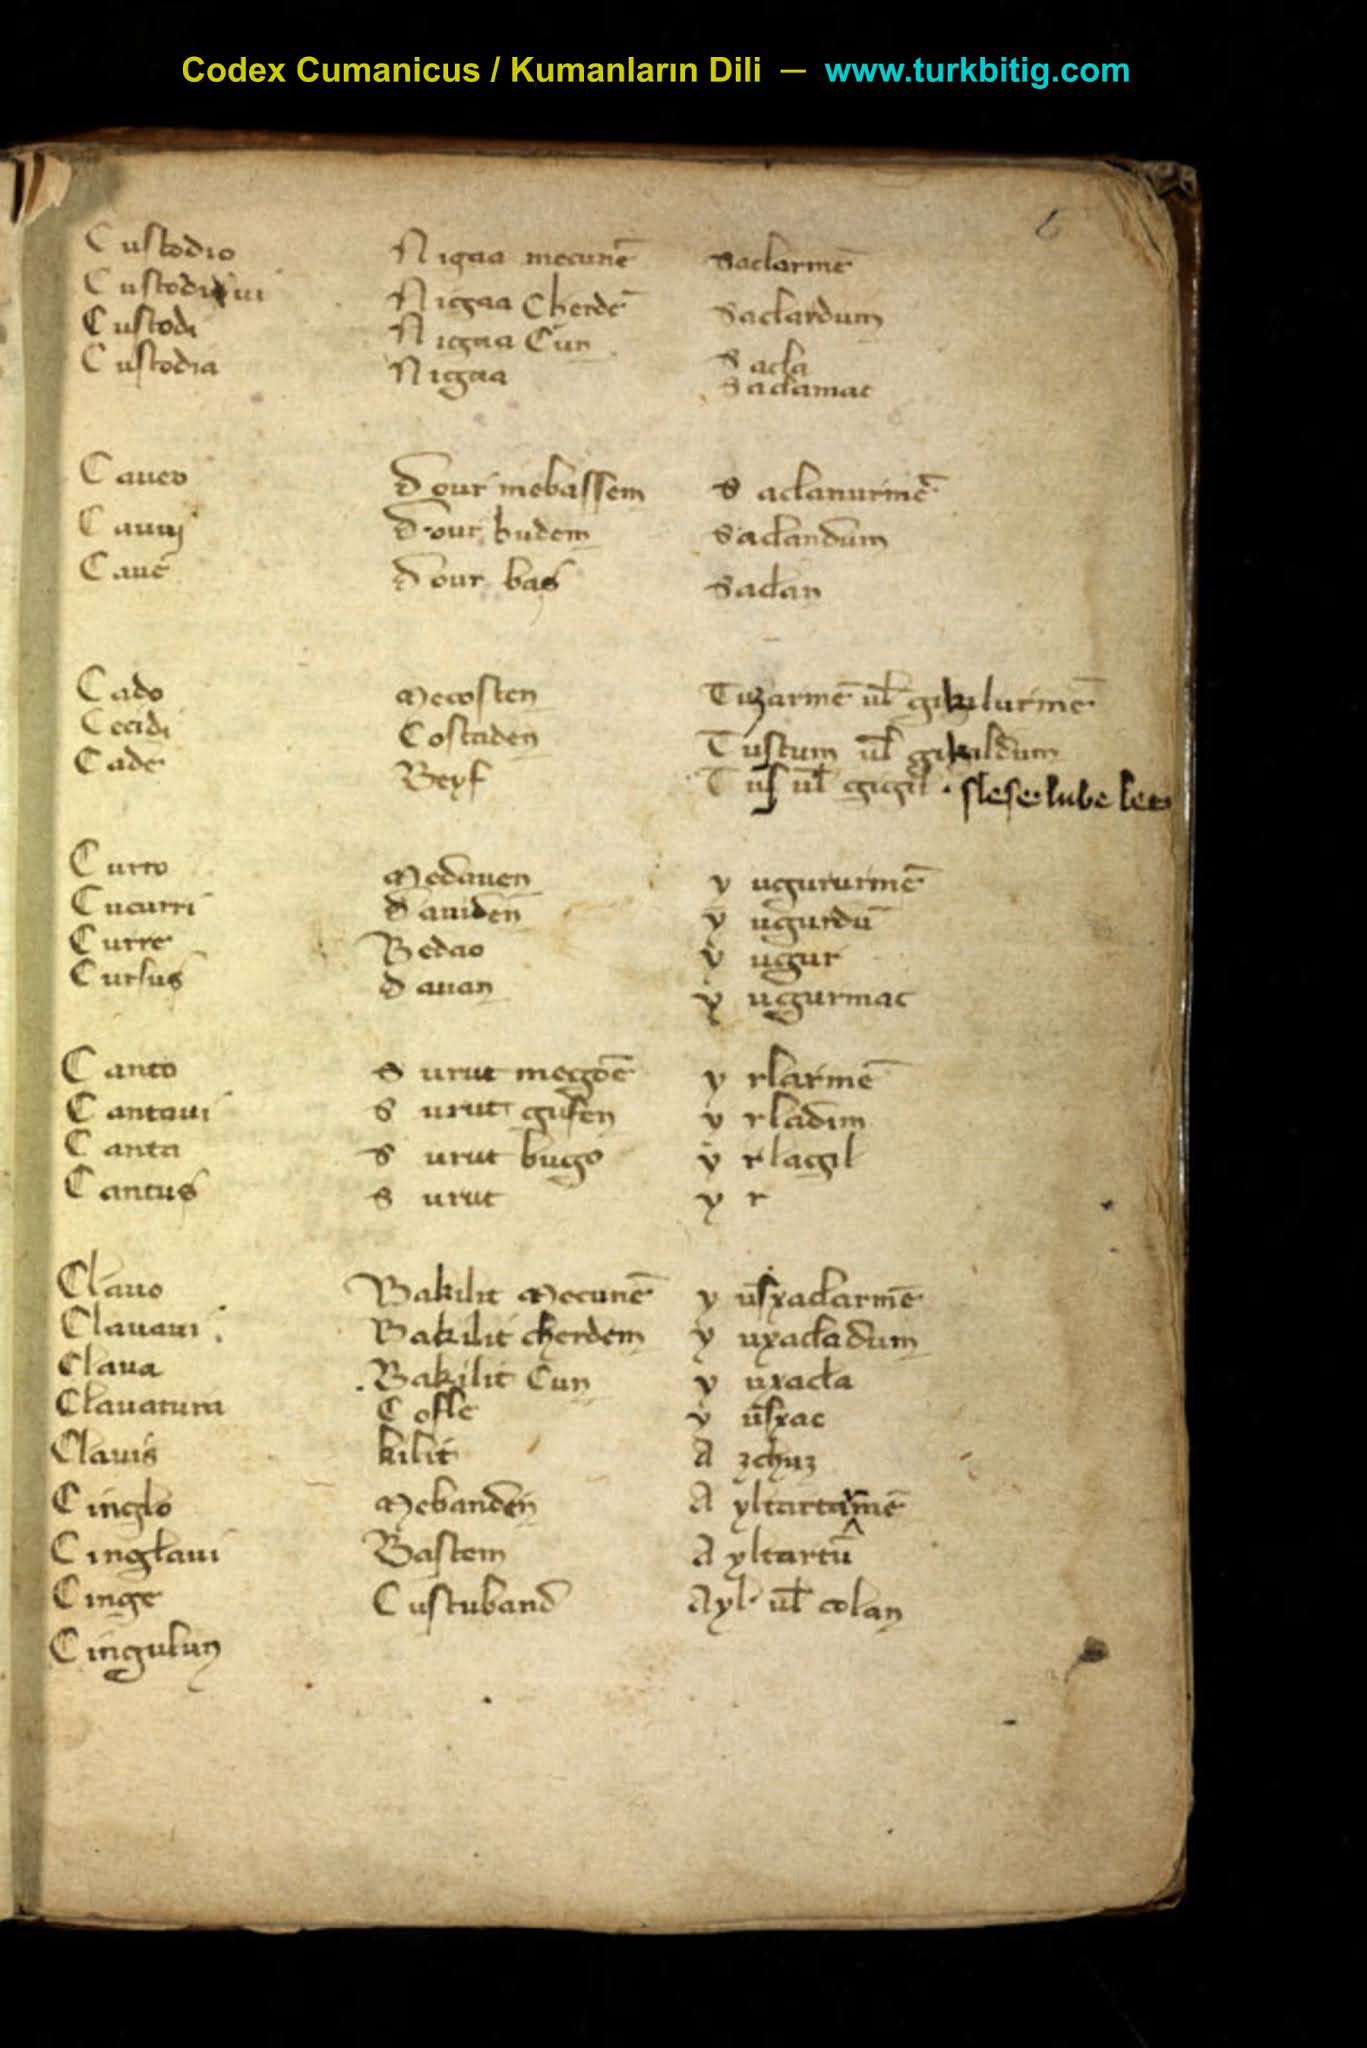 Codex Cumanicus / Kumanların Dili — www.turkbitig.com
6
Custodio Nigaa mecunē saclarmē
Custodiui Nigaa Cherdē saclardum
Custodi Nigaa Cun Sacla
Custodia Nigaa saclamac
Caueo dour mebassem saclanurmē
Cauuj dour budem saclandum
Cauē dour bas saclan
Cado mecosten Tuzarmē ul̄ gikilurmē
Cecidi Costaden Tustum ul̄ gikildum
Cade Beyf Tus ul̄ gigil
Curro Medauen yugururmē
Cucurri dauiden yugurdū
Curre Bedao yugur
Cursus dauan yugurmac
Canto surut megoē yrlarmē
Cantaui surut guften yrladim
Canta surut bugo yrlagil
Cantus surut yr
Clauo Bakilit mecunē yusxaclarmē
Clauaui Bakilit cherdem yuxacladum
Claua Bakilit Cun yuxacla
Clauatura Cofle yusxac
Clauis kilit Azchuz
Cinglo mebanden Ayltartarmē
Cinglaui Bastem Ayltartū
Cinge Custuband Ayl· ul̄ colan
Cingulun